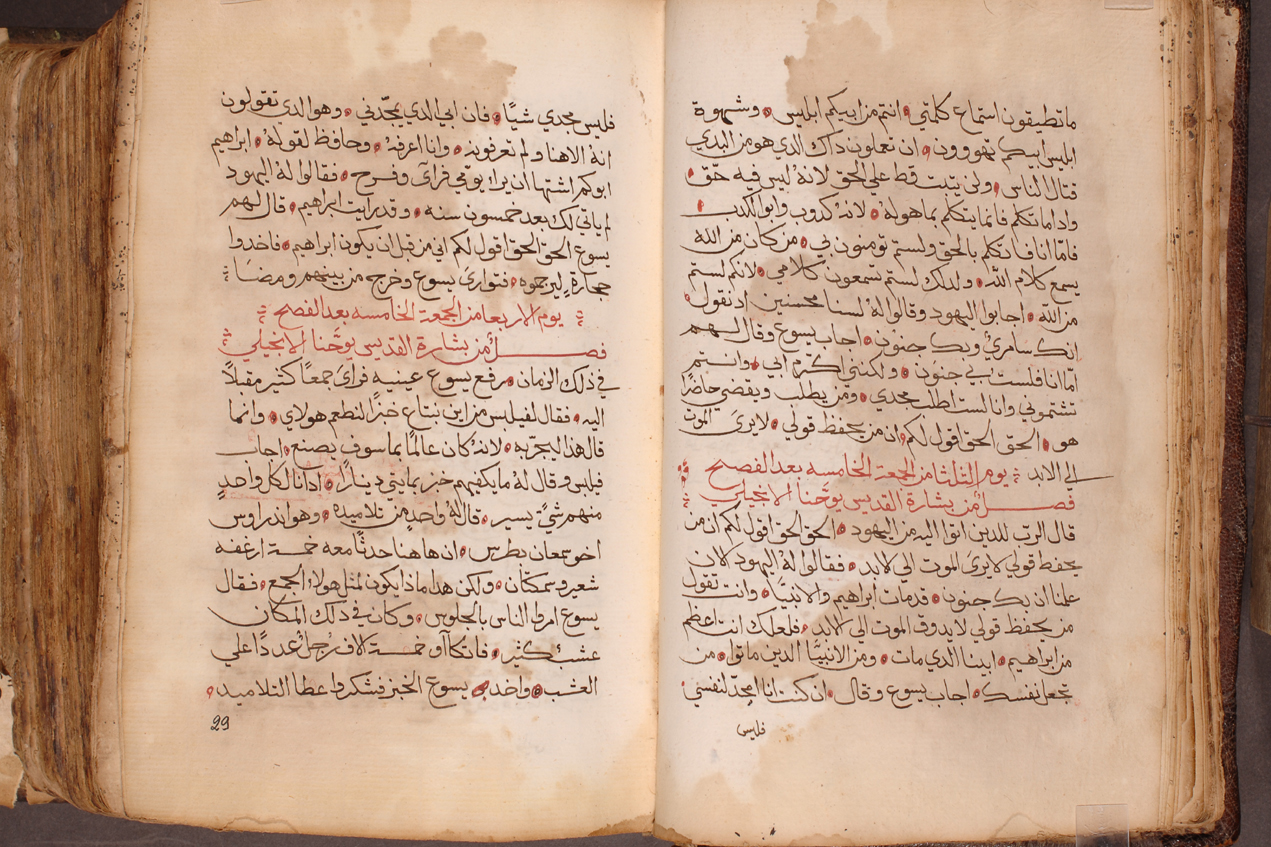 ما تطيقون استماع كلمتي انتم من ابيكم ابليس وشهوة
ابليس ابيكم تهوون ان تعلون داك الدي هو من البدي
قتال الناس ولن يتبت قط علي الحق لانهُ ليس فيه حق
وادا ما تكلم فانما يتكلم بما هو لهُ لانهُ كدوب وابو الكدب
فامّا انا فاتكلم بالحق ولستم تومنون بي من كان من الله
يسمع كلام الله ولدلك لستم تسمعون كلامي لانكم لستم
من الله اجابوا اليهود وقالوا لهُ لسنا محسنين اد نقول
انك سامريٌ وبك جنون اجاب يسوع وقال لهم
امّا انا فلست بي جنون ولكنني اكرّم ابي وانتم
تشتموني وانا لست اطلب مجدي ومن يطلب ويقضي حاضرًا
هو الحق الحق اقول لكم ان من يحفظ قولي لا يرىَ الموت
الي الابد يوم التلتا من الجمعة الخامسه بعد الفصح
فصل من بشارة القديس يوحنا الانجيلي
قال الرب للدين اتوا اليه من اليهود الحق الحق اقول لكم ان من
يحفظ قولي لا يرىَ الموت الي لابد فقالوا لهُ اليهود الان
علمنا ان بك جنون قد مات ابراهيم والانبيَا وانت تقول
من يحفظ قولي لا يدوق الموت الي الابد فلعلك انت اعظم
من ابراهيم ابينا الدي مات ومن الانبيَّا الدين ماتوا من
تجعل نفسك اجاب يسوع وقال ان كنت انا امجد لنفسي
فليس
فليس مجدي شيًا فان ابي الدي يمجّدني وهو الدى تقولون
انهُ الاهنا ولم تعرفونهِ وانا اعرفهُ وحافظ لقولهُ ابراهيم
ابوكم اشتها ان يرا يومي فرآى وفرح فقالوا لهُ اليهود
لم ياتي لك بعد خمسون سنه وقد رايت ابراهيم قال لهم
يسوع الحق الحق اقول لكم اني من قبل ان يكون ابراهيم فاخدوا
حجارةٍ ليرجموه فتوارىَ يسوع وخرج من بينهم ومضَا
يوم الاربعا من الجمعة الخامسه بعد الفصح
فصل من بشارة القديس يوحنا الانجيلي
في ذلك الزمان رفع يسوع عينيه فراىَ جمعًا كثير مقبلًا
اليه فقال لفيلبس من اين نبتاع خبزًا لنطعم هولاي وانما
قال هذا ليجربه لانهُ كان عالمًا بما سوف يصنع اجاب
فيلبس وقال لهُ ما يكفيهم خبز بمايتي دينارًا ادا نال كل واحدٍ
منهم شيٌ يسير قال لهُ واحدٍ من تلاميده وهو اندراوس
اخو سمعان بطرس ان هاهنا حدثًا معه خمسة ارغفه
شعير وسمكتان ولكن هدا ماذا يكون لمثل هولاءِ الجمع فقال
يسوع امروا الناس بالجلوس وكان في ذلك المكان
عشبٌ كثير فاتكاآو خمسة الاف رجل عددًا علي
العشب واخد يسوع الخبز فشكر واعطا التلاميد
29